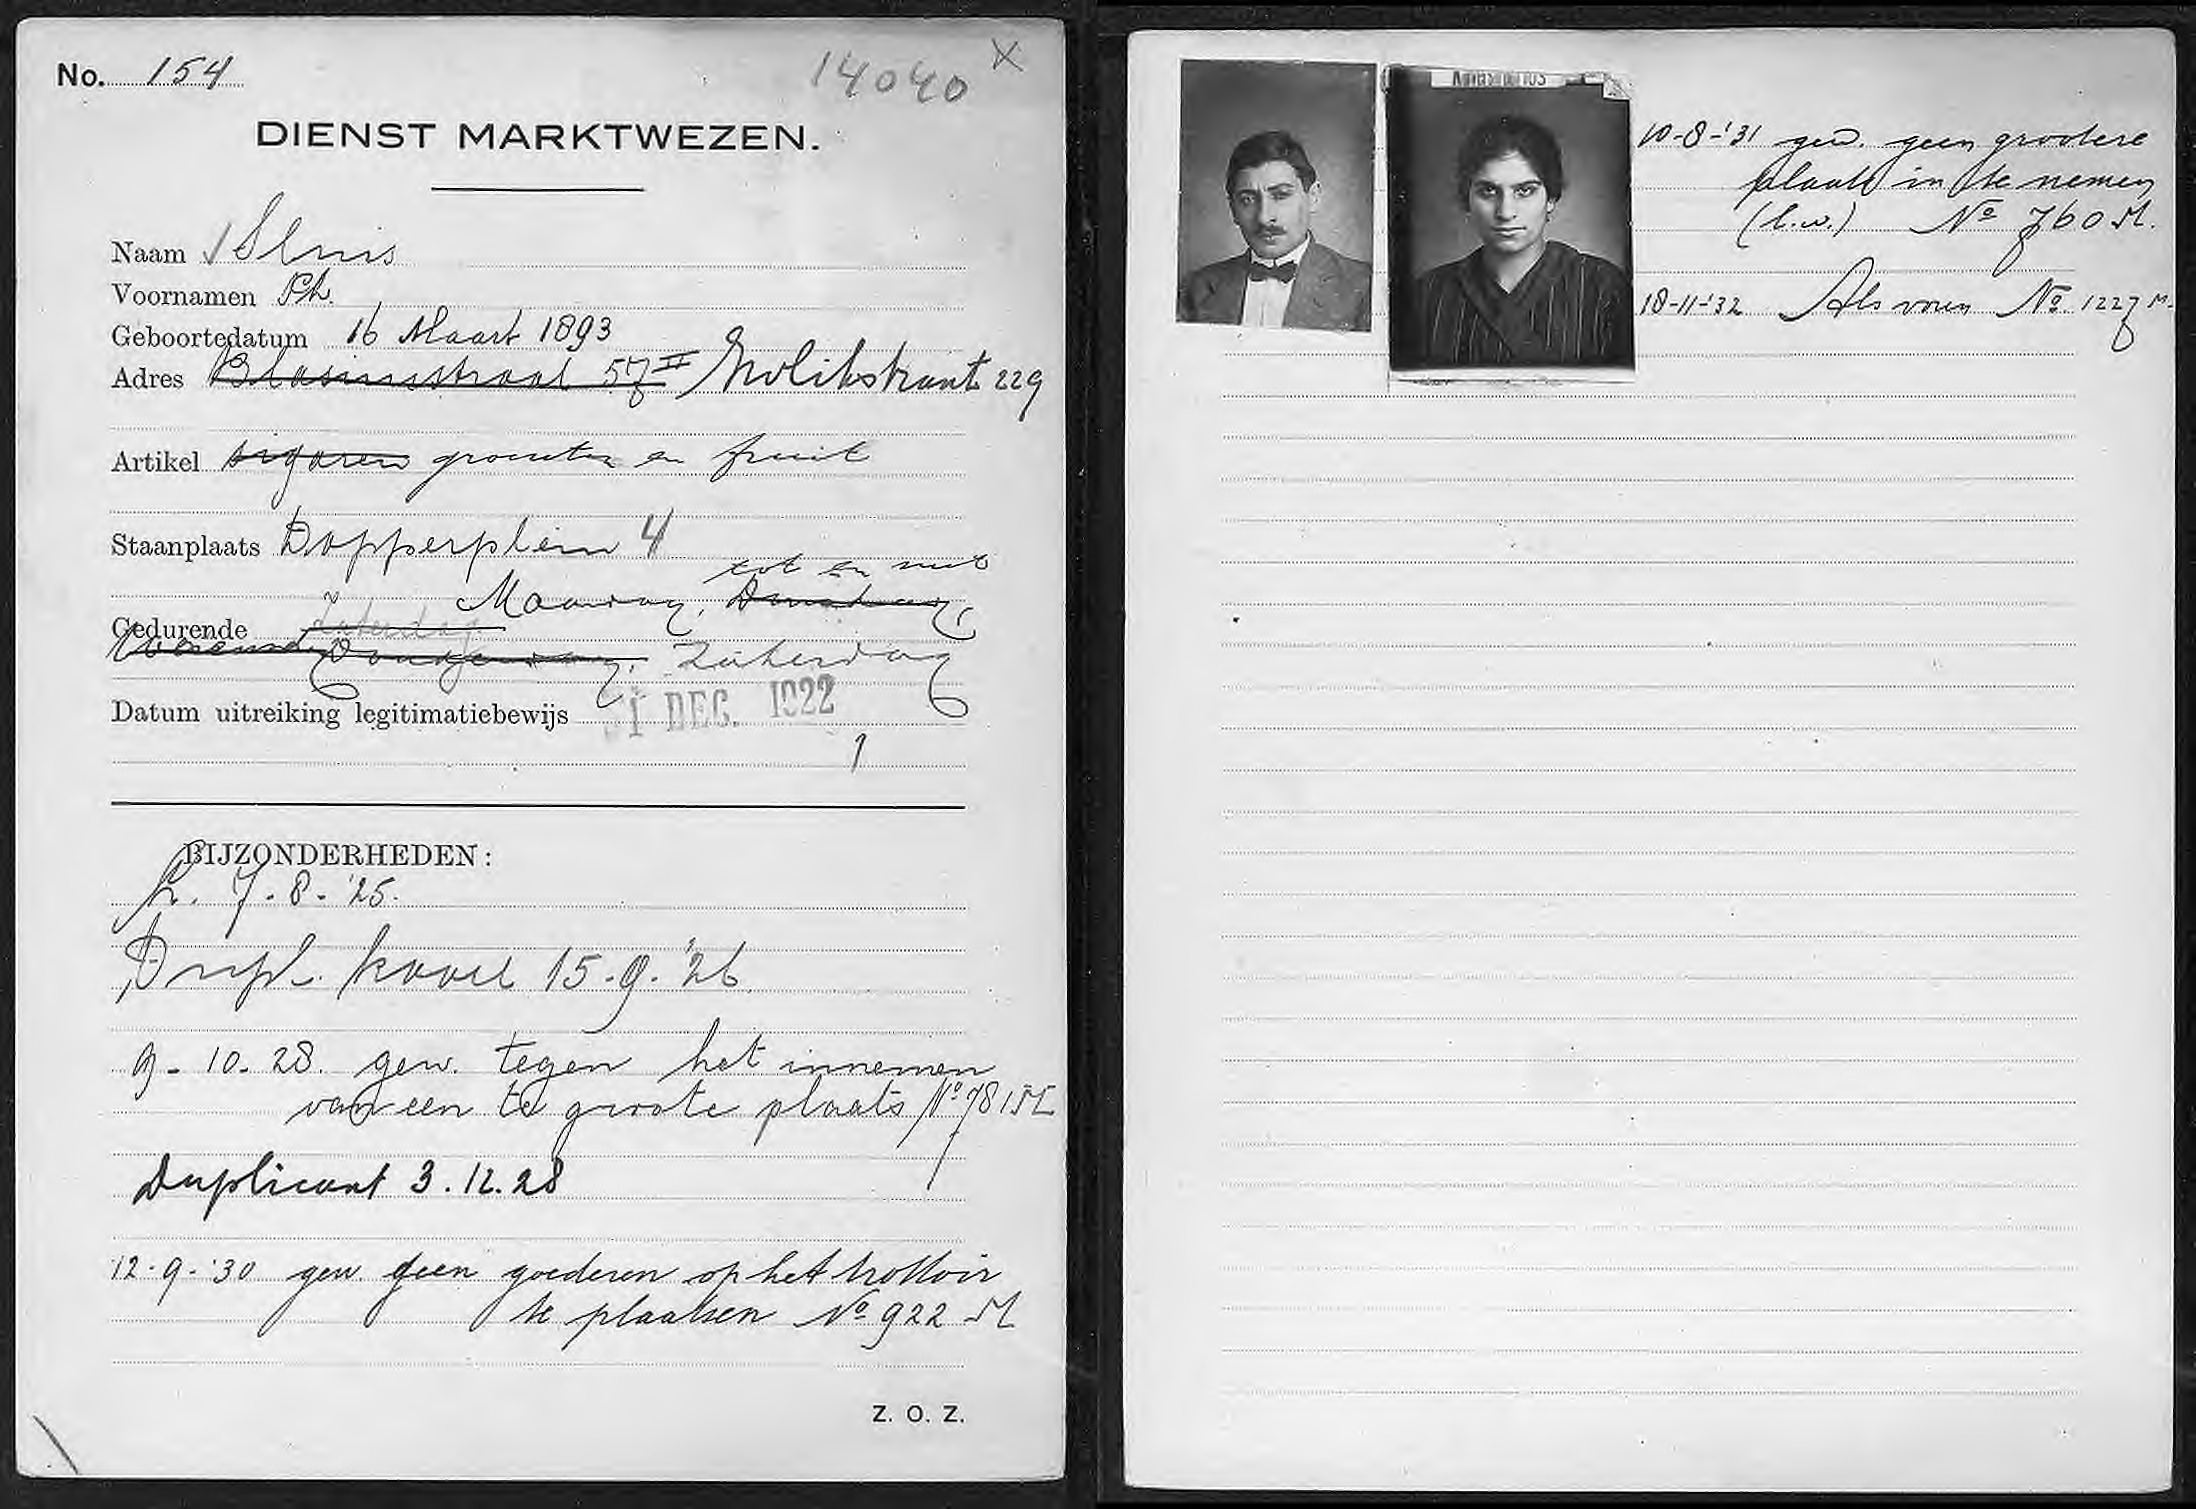 No. 154
14040 X
DIENST MARKTWEZEN.
Naam Sluis
Voornamen Ph.
Geboortedatum 16 Maart 1893
Adres Blasiusstraat 57 II Smitstraat 229
Artikel sigaren groenten en fruit
Staanplaats Dapperplein 4
tot en met
Maandag, Dinsdag,
Gedurende Zaterdag
Woensd. Donderdag, Zaterdag
Datum uitreiking legitimatiebewijs 1 DEC. 1922
1
BIJZONDERHEDEN:
h. 7-8-'25.
Dupl. kaart 15-9-'26.
9-10-28. gew. tegen het innemen
van een te groote plaats No 781 M
Duplicaat 3.12.28
12-9-'30 gew geen goederen op het trottoir
te plaatsen No 922 M
Z. O. Z.
10-8-'31 gew. geen grootere
plaats in te nemen
(l.w.) No 760 M.
18-11-'32 Als voren No. 1227 M.